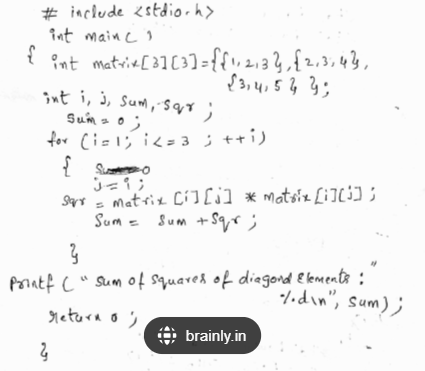 # include <stdio.h>
int main( )
{ int matrix[3][3]={{1,2,3},{2,3,4},
{3,4,5} };
int i, j, sum, sqr ;
sum = 0 ;
for (i=1; i<=3 ; ++i)
{
j = i ;
sqr = matrix [i][j] * matrix [i][j] ;
sum = sum + sqr ;
}
printf ( " sum of squares of diagonal elements : "
%d\n", sum) ;
return 0 ;
}
brainly.in